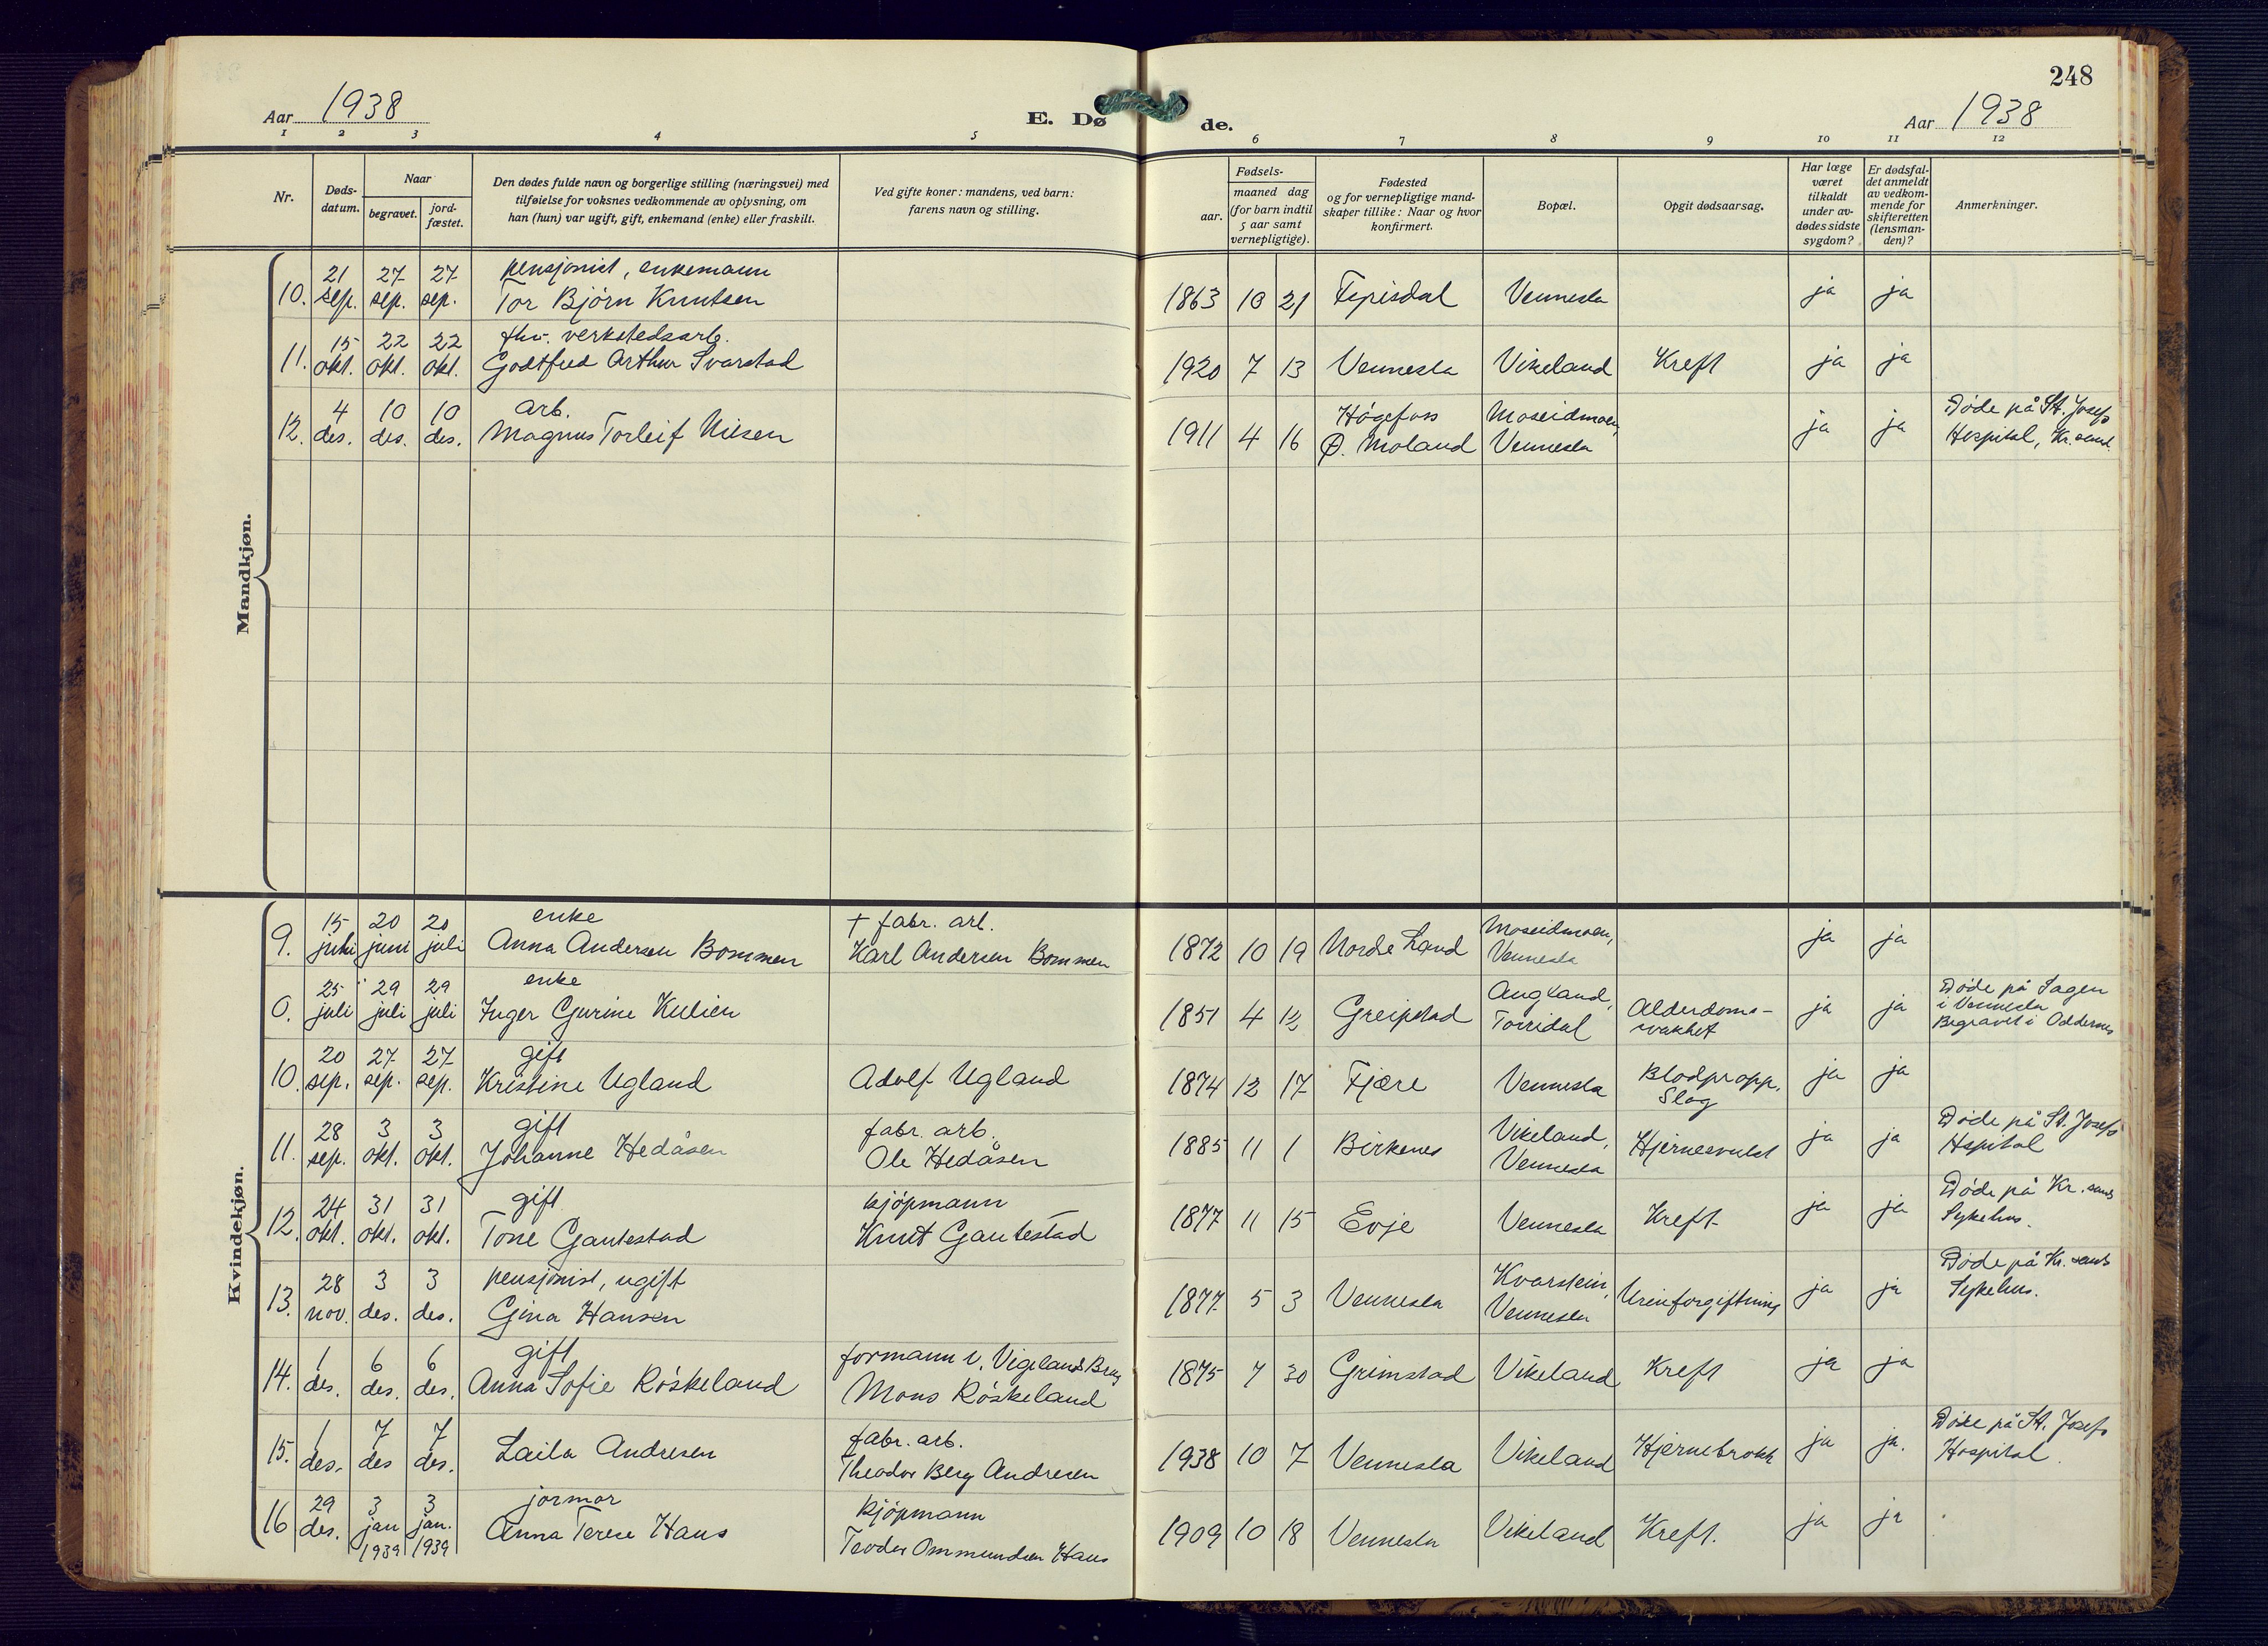 248
Aar 1938
E. Dø de.
Aar 1938
1 2 3 4 5 6 7 8 9 10 11 12
Nr.
Døds-
datum.
Naar
begravet.
jord-
fæstet.
Den dødes fulde navn og borgerlige stilling (næringsvei) med
tilføielse for voksnes vedkommende av oplysning, om
han (hun) var ugift, gift, enkemand (enke) eller fraskilt.
Ved gifte koner: mandens, ved barn:
farens navn og stilling.
Fødsels-
aar.
maaned dag
(for barn indtil
5 aar samt
vernepligtige).
Fødested
og for vernepligtige mand-
skaper tillike: Naar og hvor
konfirmert.
Bopæl.
Opgit dødsaarsag.
Har læge
været
tilkaldt
under av-
dødes sidste
sygdom?
Er dødsfal-
det anmeldt
av vedkom-
mende for
skifteretten
(lensman-
den)?
Anmerkninger.
Mandkjøn.
21 27 27 pensjonist, enkemann
10. sep. sep. sep. Tor Bjørn Knutsen 1863 10 21 Vennesla ja ja
15 22 22 fhv. verkstedsarb.
11. okt. okt. okt. Godtfred Arthur Svarstad 1920 7 13 Vennesla Vikeland Kreft ja ja
4 10 10 arb. Høgefoss Moseidmoen, Døde på St. Josefs
12. des. des. des. Magnus Torleif Nilsen 1911 4 16 Ø. Moland Vennesla ja ja Hospital, Kr.sand.
Kvindekjøn.
15 20 20 enke + fabr. arb. Moseidmoen,
9. juli juni juli Anna Andersen Bommen Karl Andersen Bommen 1872 10 19 Nordre Land Vennesla ja ja
25 29 29 enke Augland, Døde på Sagen
0. juli juli juli Inger Gurine 1851 4 12 Greipstad Torridal Alderdoms-
svakhet ja ja i Vennesla
Begravet i Oddernes
20 27 27 gift
10. sep. sep. sep. Kristine Ugland Adolf Ugland 1874 12 17 Fjære Vennesla Blodpropp,
Slag ja ja
28 3 3 gift fabr. arb. Vikeland, Døde på St. Josefs
11. sep. okt. okt. Johanne Hedåsen Ole Hedåsen 1885 11 1 Birkenes Vennesla Hjernesvulst ja ja Hspital
24 31 31 gift kjøpmann Døde på Kr.sands
12. okt. okt. okt. Tone Gautestad Knut Gautestad 1877 11 15 Evje Vennesla Kreft ja ja Sykehus.
28 3 3 pensjonist, ugift Kvarstein, Døde på Kr.sands
13. nov. des. des. Gina Hansen 1877 5 3 Vennesla Vennesla Urinforgiftning ja ja Sykehus.
1 6 6 gift formann v. Vigelands Brug
14. des. des. des. Anna Sofie Røskeland Mons Røskeland 1875 7 30 Grimstad Vikeland Kreft ja ja
1 7 7 fabr. arb. Døde på St. Josefs
15. des. des des. Laila Andresen Theodor Berg Andresen 1938 10 7 Vennesla Vikeland Hjernebrokk ja ja. Hospital.
29 3 3 jormor kjøpmann
16 des. jan jan. Anna Terese Haus Teodor Ommundsen Haus 1909 10 18 Vennesla Vikeland Kreft. ja ja
1939 1939